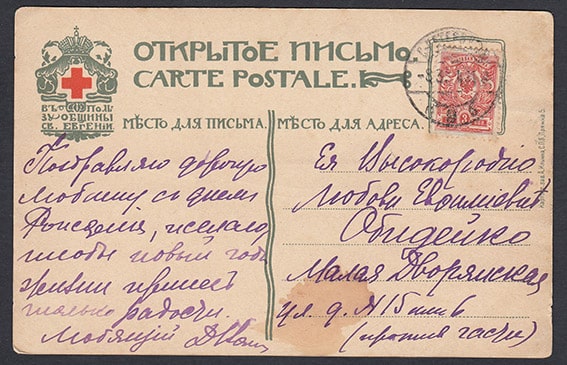 ОТКРЫТОЕ ПИСЬМО
CARTE POSTALE.
ВЪ ПОЛЬ
ЗУ ОБЩИНЫ
СВ. ЕВГЕНІИ
МѢСТО ДЛЯ ПИСЬМА.
МѢСТО ДЛЯ АДРЕСА.
Поздравляю дорогую
Любашу съ днемъ
Рожденія, желаю
чтобы новый годъ
жизни принесъ
только радости.
Любящій
Ея Высокородію
Любови
Обидейко
Малая Дворянская
ул. д. №15 кв 6